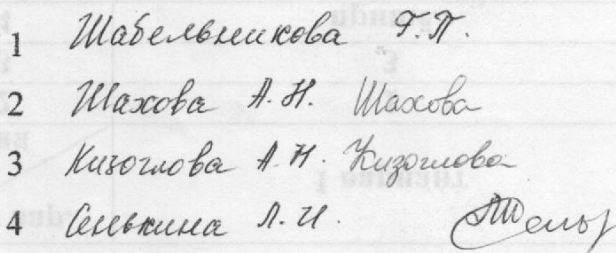 1 Шабельникова Г.П.
2 Шахова А.Н. Шахова
3 Кизоглова А.Н. Кизоглова
4 Сенькина Л.И.